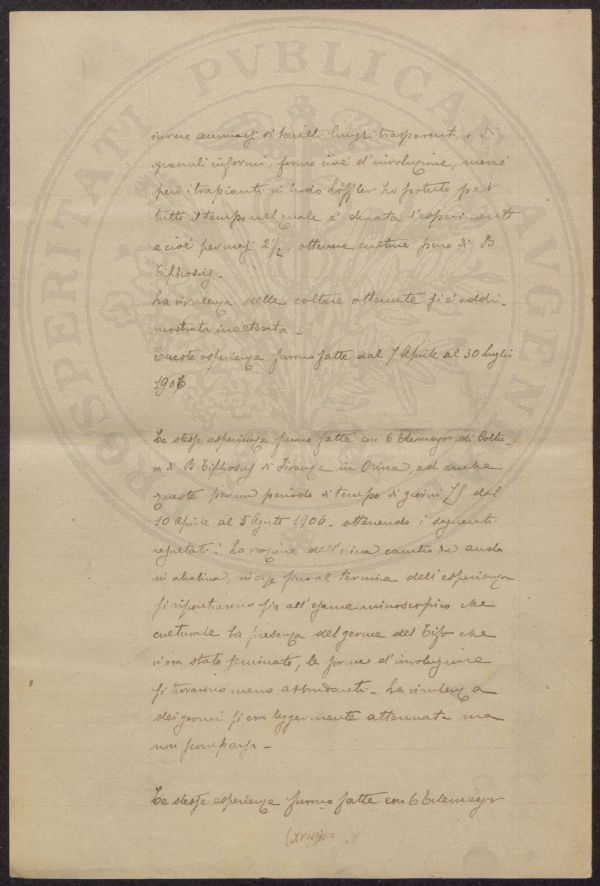 PROSPERITATI PVBLICAE AVGENDAE
invece ammassi di bacilli lunghi trasparenti, e di
granuli informi, forme cioè d'involuzione, mercè
però i trapianti in brodo Löffler ho potuto per
tutto il tempo nel quale è durata l'esperimento
e cioè per mesi 2 1/2, ottenere culture pure di B
Tiphosus.
La virulenza delle colture ottenute si è addi-
mostrata inalterata.
Queste esperienze furono fatte dal 7 Aprile al 30 Luglio
1906
Le stesse esperienze furono fatte con 6 Erlemeyr di Coltu-
ra di B Tiphosus di Firenze in Orina, ed anche
queste per un periodo di tempo di giorni 75 dal
10 Aprile al 5 Agosto 1906. ottenendo i seguenti
resultati: La reazione dell'orina cambiò da acida
in alcalina, in esse fino al termine dell'esperienza
si riscontrarono sia all'esame microscopico che
culturale la presenza del germe del Tifo che
vi era stato seminato, le forme d'involuzione
si trovarono meno abbondanti. La virulenza
dei germi si era leggermente attenuata ma
non scomparsa.
Le stesse esperienze furono fatte con 6 Erlemeyr